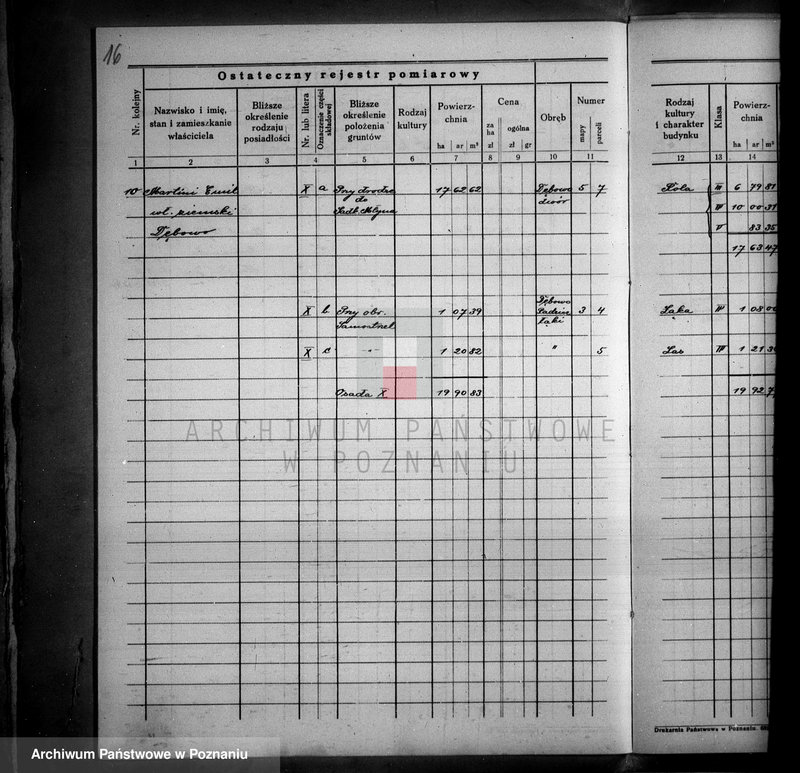 16
Ostateczny rejestr pomiarowy
Nr. kolejny
Nazwisko i imię, stan i zamieszkanie właściciela
Bliższe określenie rodzaju posiadłości
Nr. lub litera
Oznaczenie części składowej
Bliższe określenie położenia gruntów
Rodzaj kultury
Powierzchnia
ha ar m²
Cena
za ha zł
ogólna
zł gr
Obręb
Numer
mapy parceli
Rodzaj kultury i charakter budynku
Klasa
Powierzchnia
ha ar m²
1 2 3 4 5 6 7 8 9 10 11 12 13 14
10 Martini Emil X a Przy drodze 17 62 62 Dębowo 5 7 Rola III 6 79 81
wł. ziemski do dwór IV 10 00 31
Dębowo V 83 35
17 63 47
X b Przy obr. 1 07 39 Dębowo 3 4 Łąka IV 1 08
Samostrzel łąki
X c " 1 20 82 " 5 Las IV 1 21
Osada X 19 90 83 19 92
ARCHIWUM PAŃSTWOWE
W POZNANIU
Drukarnia Państwowa w Poznaniu.
Archiwum Państwowe w Poznaniu